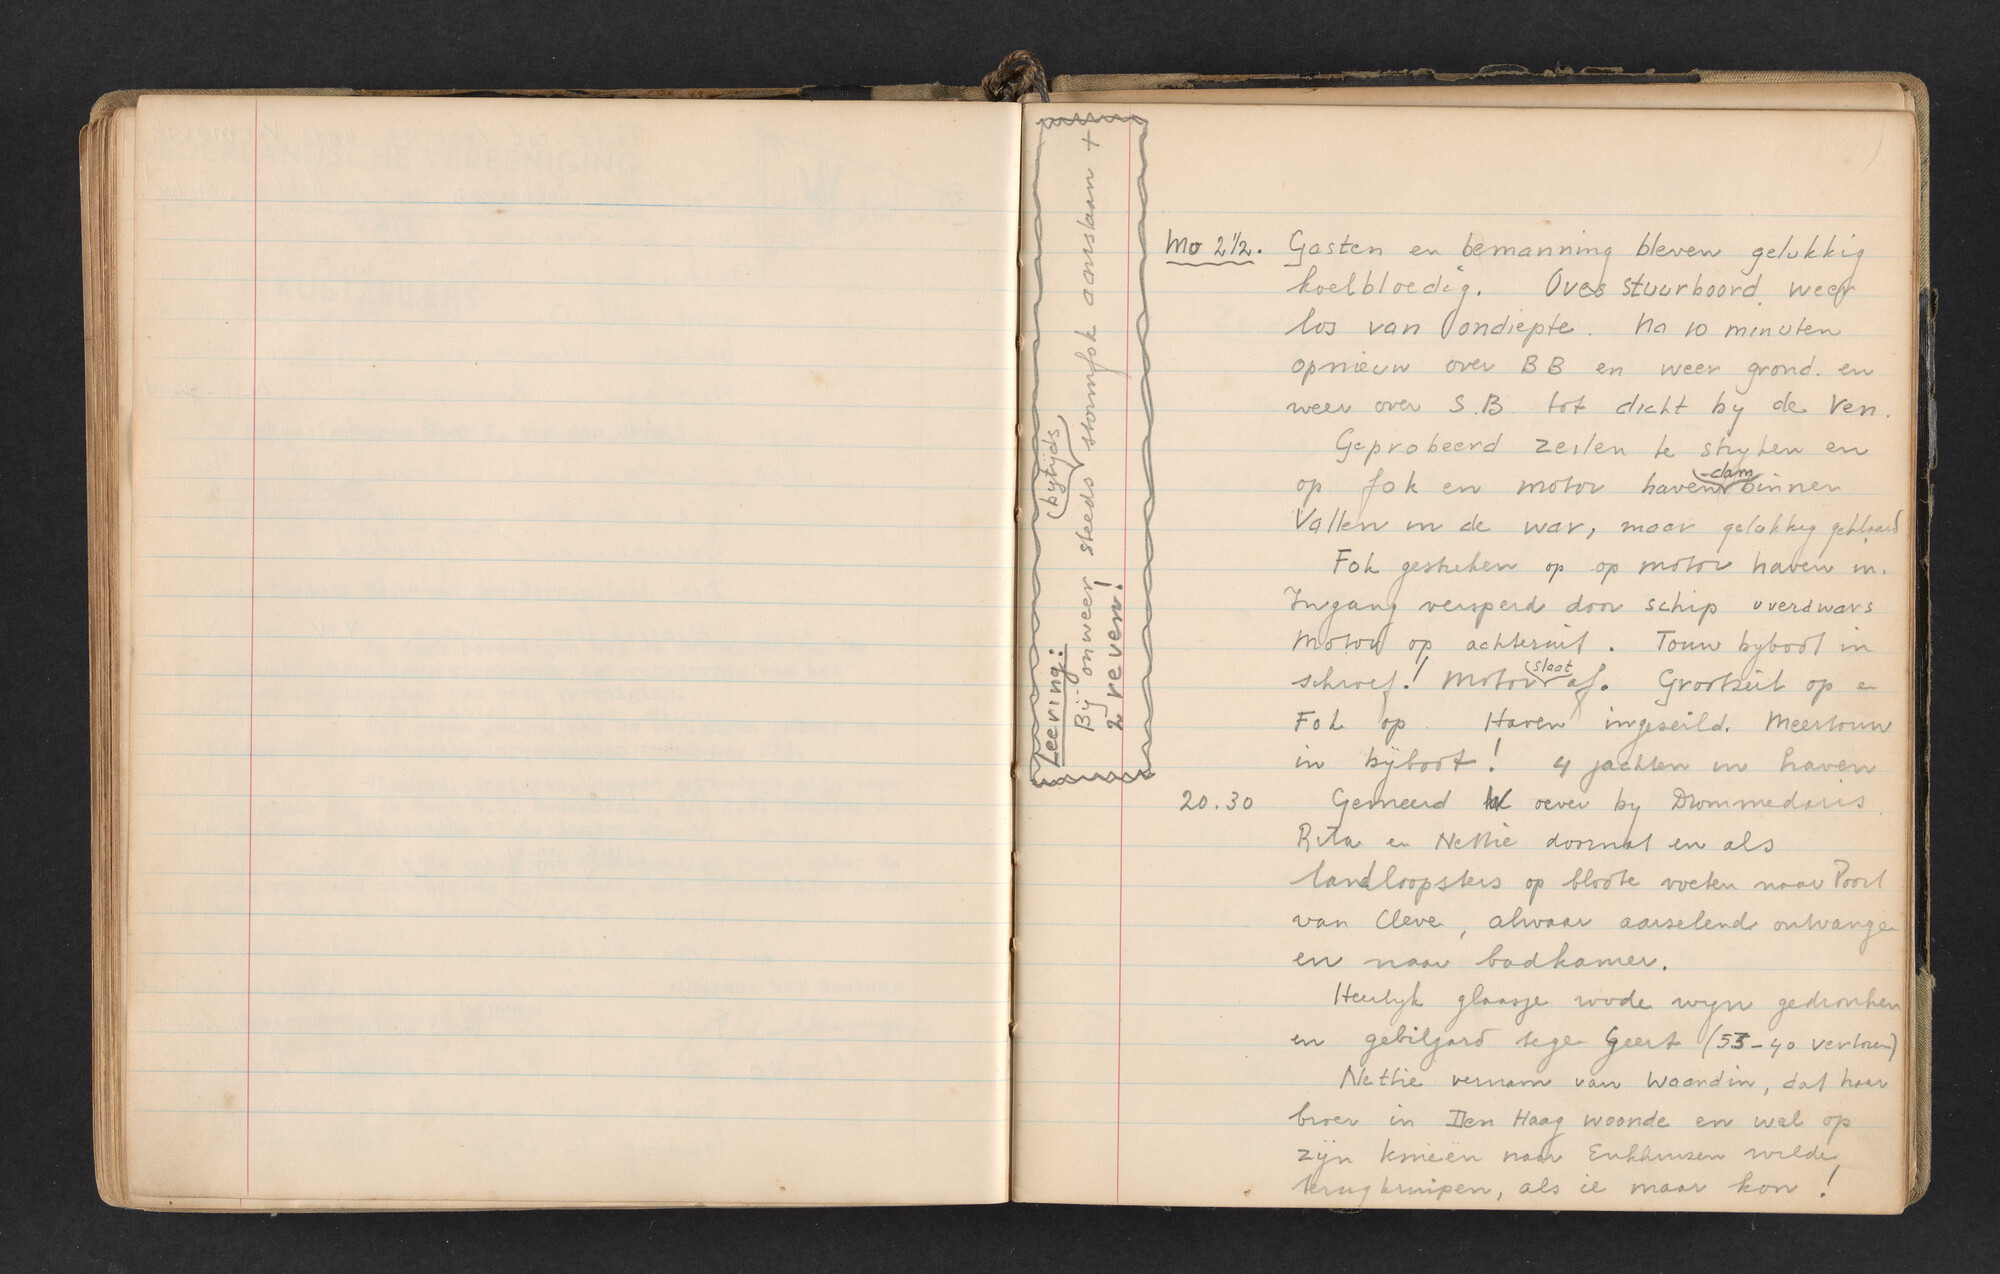 Leering:
Bij onweer (bytijds) steeds stormfok aanslaan +
2 reven!
Mo 2 1/2. Gasten en bemanning bleven gelukkig
koelbloedig. Over stuurboord weer
los van ondiepte. Na 10 minuten
opnieuw over BB en weer grond. en
weer over S.B. tot dicht by de Ven.
Geprobeerd zeilen te stryken en
op fok en motor haven -dam binnen
Vallen in de war, maar gelukkig geklaard
Fok gestreken op op motor haven in.
Ingang versperd door schip overdwars
Motor op achteruit. Touw byboot in
schroef! Motor slaat af. Grootzeil op e
Fok op. Haven ingezeild. Meertouw
in bijboot! 4 jachten in haven
20.30 Gemeerd oever by Drommedaris.
Rita en Nettie doornat en als
landloopsters op bloote voeten naar Poort
van Cleve, alwaar aarzelend ontvange
en naar badkamer.
Heerlyk glaasje rode wyn gedronken
en gebiljard tege Geert (53-40 verloren)
Nettie vernam van Waardin, dat haar
broer in Den Haag woonde en wel op
zijn knieën naar Enkhuizen wilde
terugkruipen, als ie maar kon!